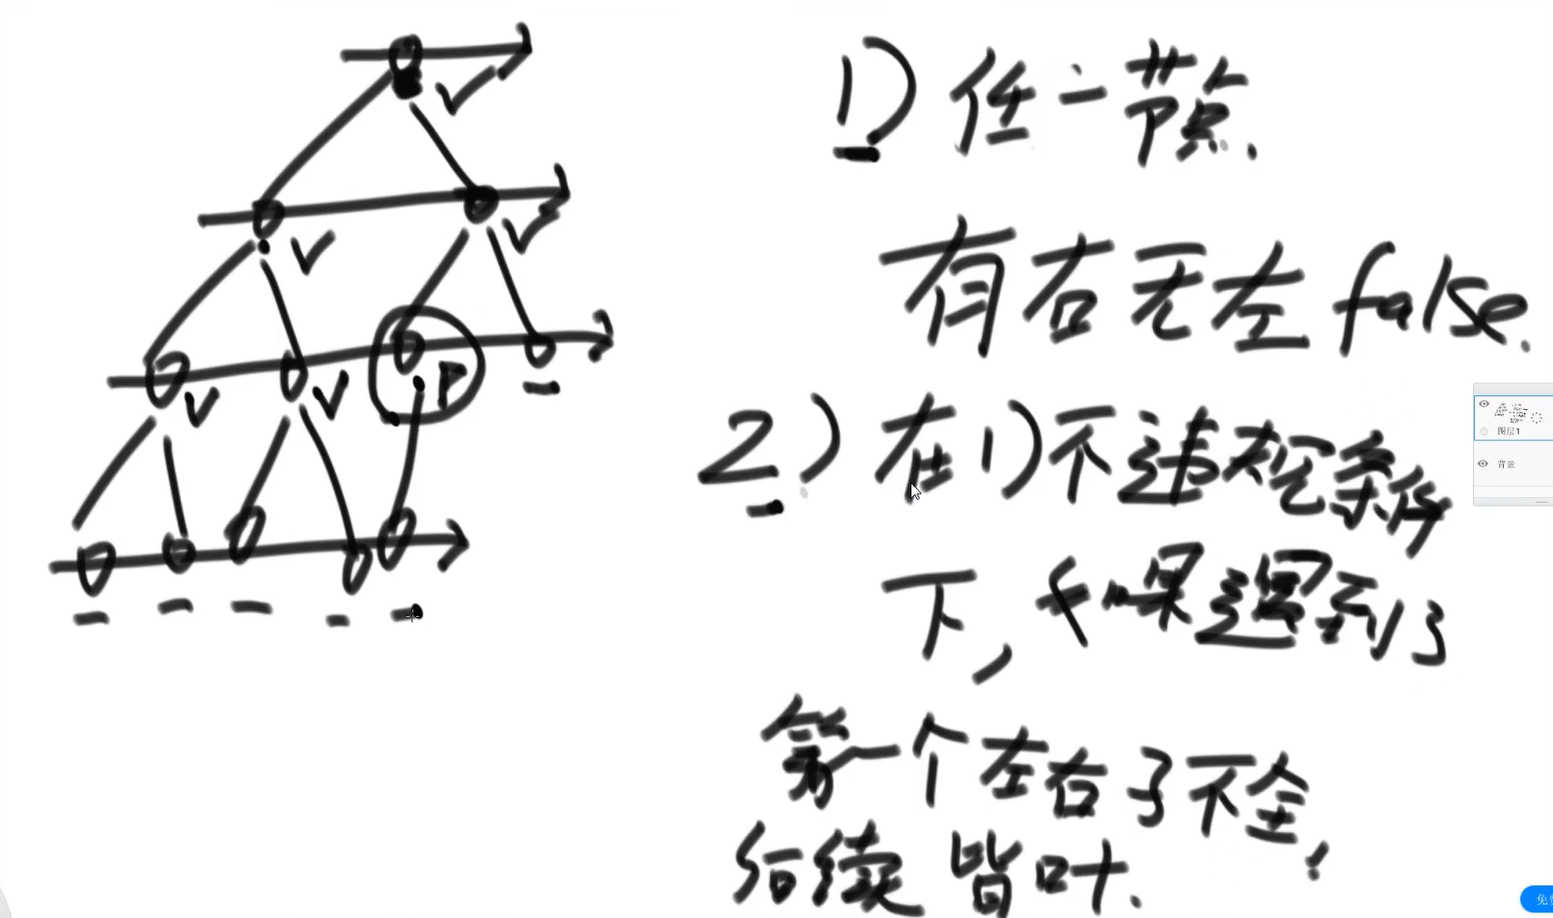 1) 任一节点.
有右无左 false.
2.) 在1)不违规条件
下, 如果遇到了
第一个左右子不全,
后续皆叶.
P
图层1
背景
免